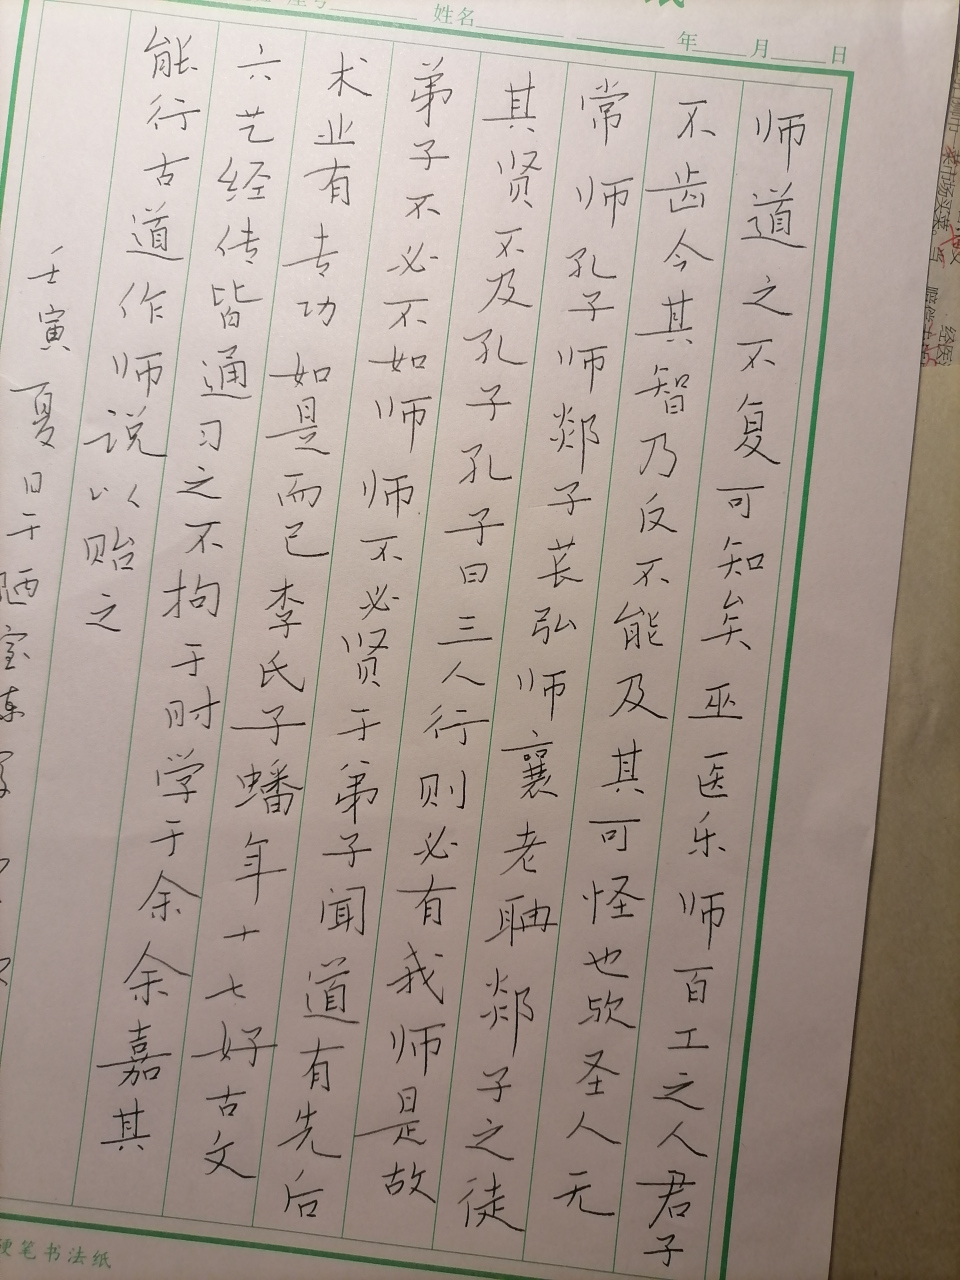 姓名 年 月 日
师道之不复可知矣巫医乐师百工之人君子
不齿今其智乃反不能及其可怪也欤圣人无
常师孔子师郯子苌弘师襄老聃郯子之徒
其贤不及孔子孔子曰三人行则必有我师是故
弟子不必不如师师不必贤于弟子闻道有先后
术业有专功如是而已李氏子蟠年十七好古文
六艺经传皆通习之不拘于时学于余余嘉其
能行古道作师说以贻之
壬寅夏日于
硬笔书法纸